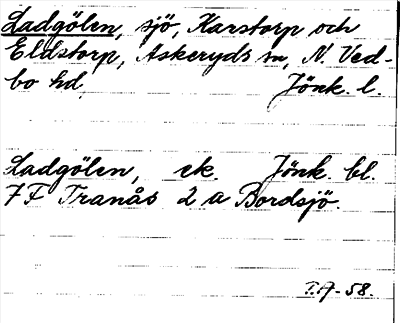 Ladgölen, sjö, Karstorp och
Eldstorp, Askeryds sn, N. Ved-
bo hd. Jönk. l.
Ladgölen, ek. Jönk. bl.
7 F Tranås 2 a Bordsjö.
T.A- 58.